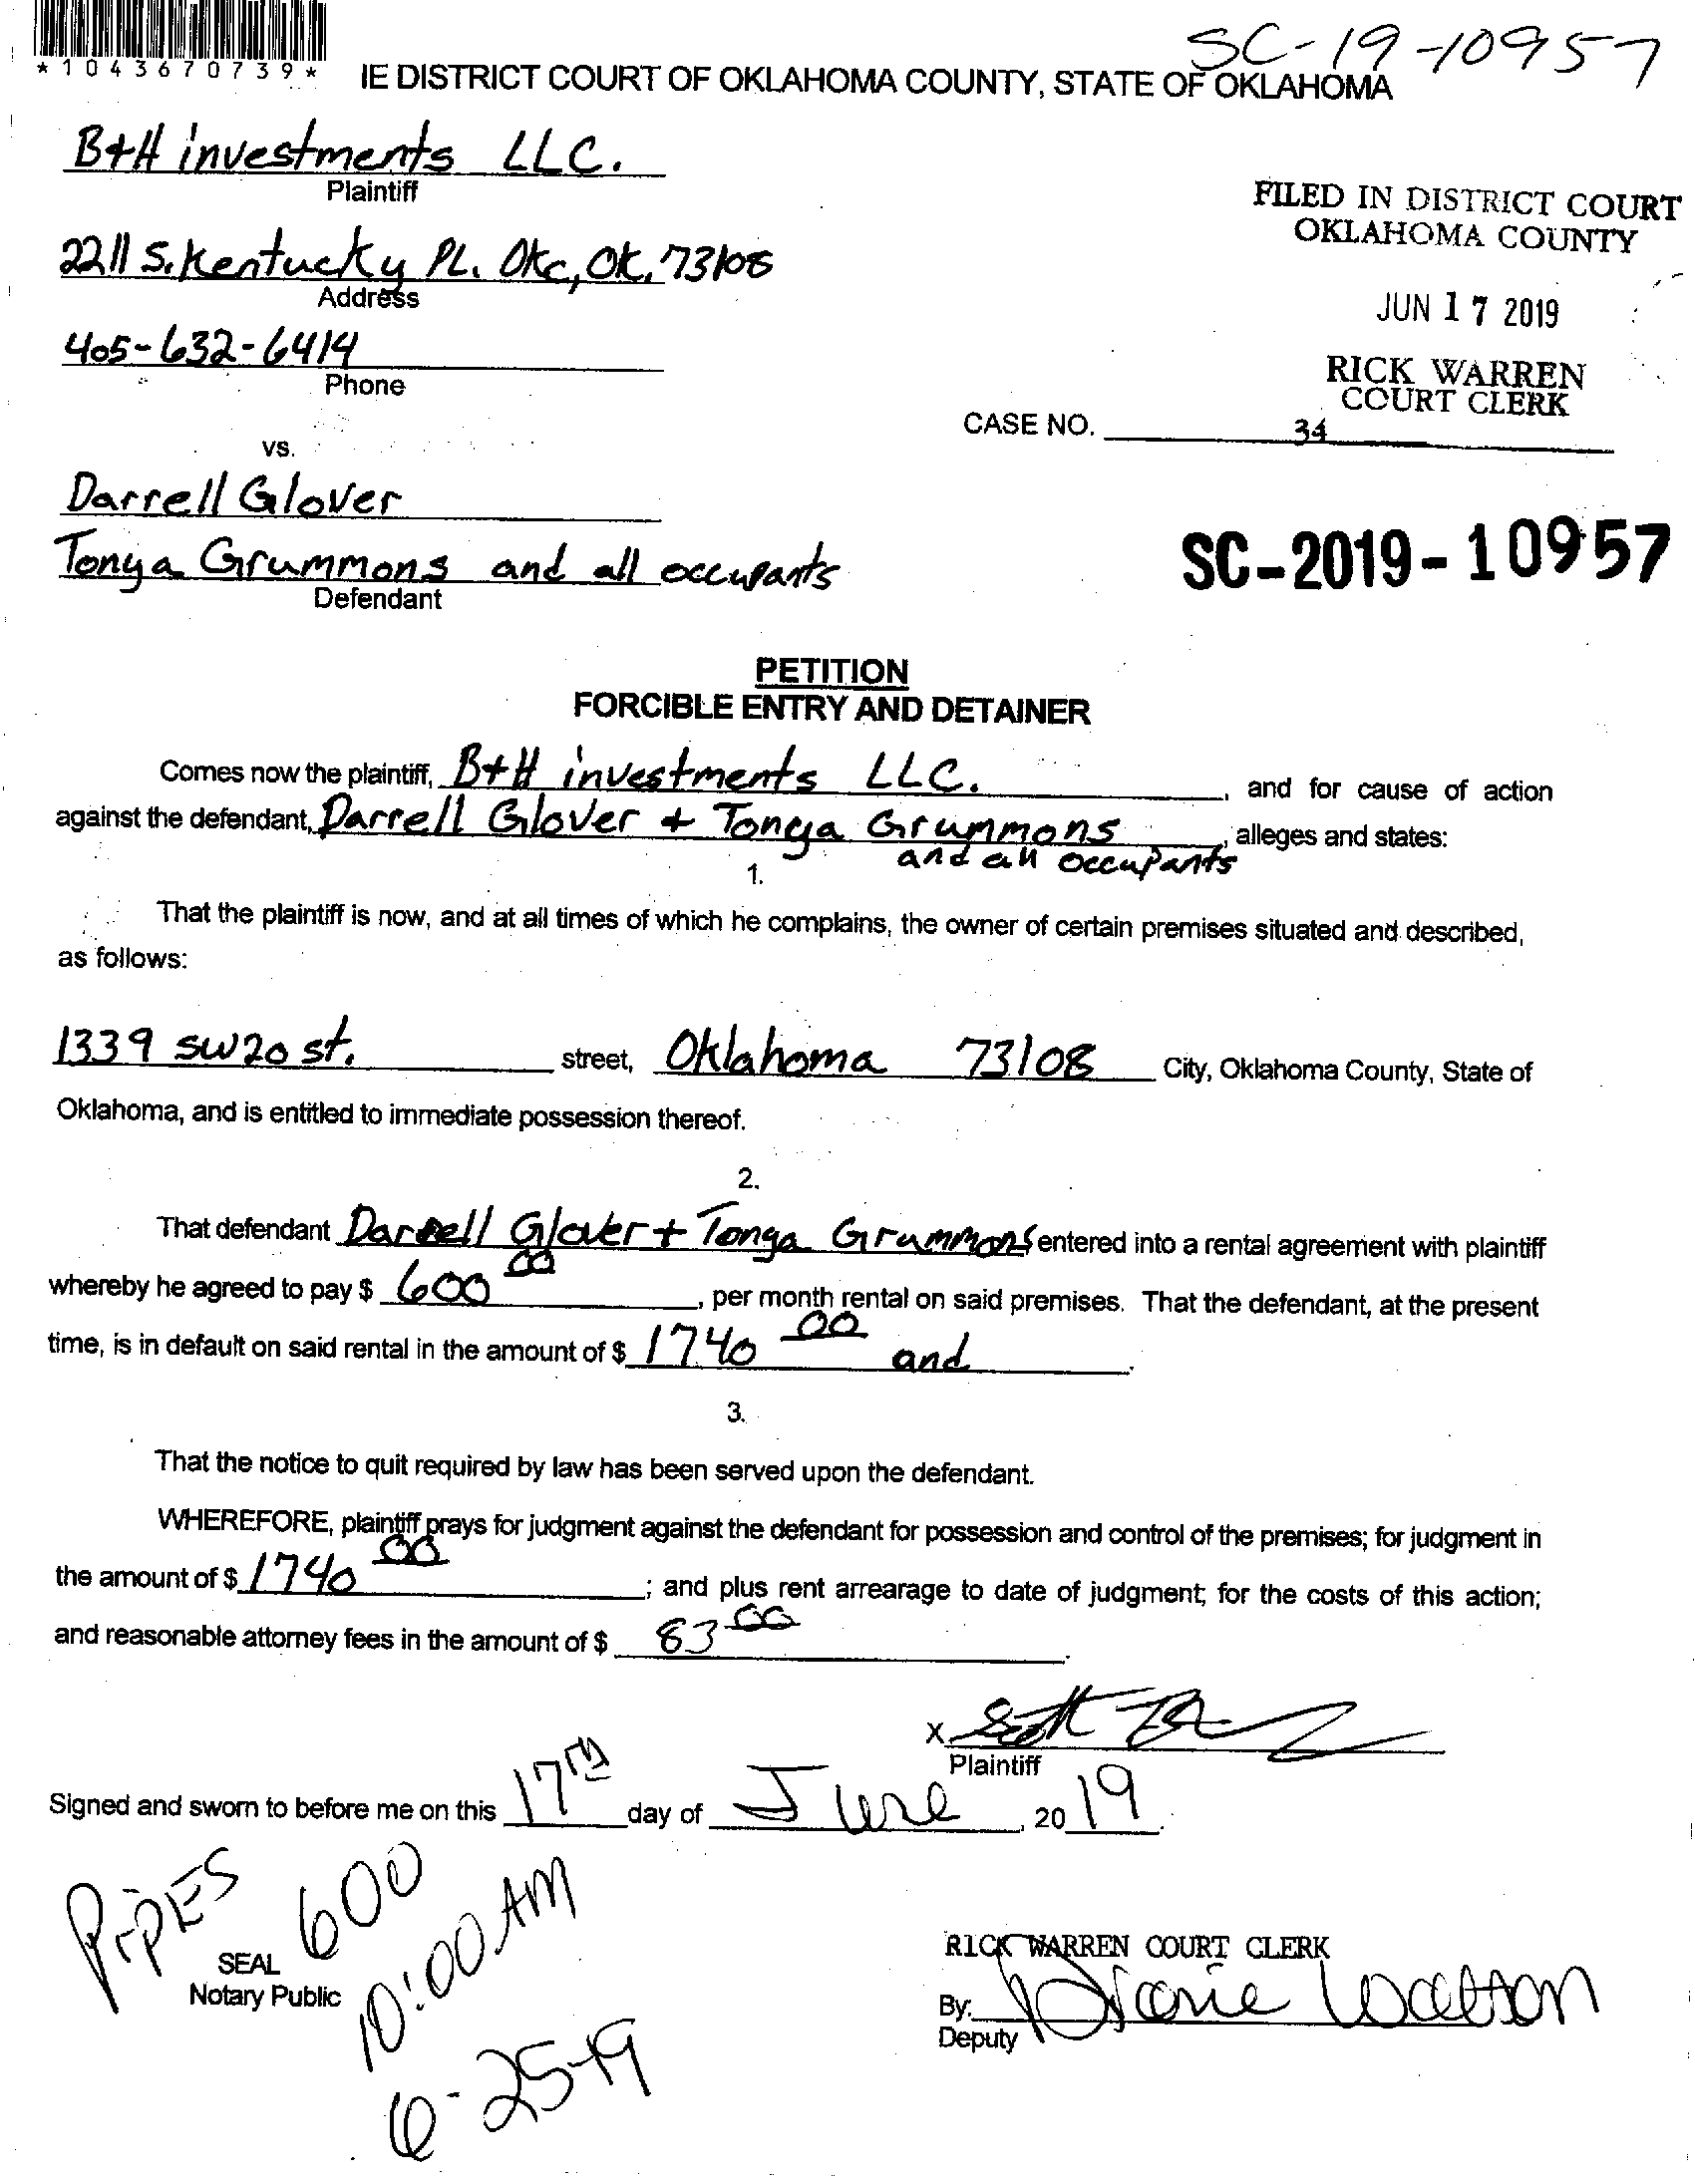 SC-19-10957
*1043670739*
IE DISTRICT COURT OF OKLAHOMA COUNTY, STATE OF OKLAHOMA
B+H investments LLC.
Plaintiff
2211 S. Kentucky PL. Okc, OK. 73108
Address
405-632-6414
Phone
FILED IN DISTRICT COURT
OKLAHOMA COUNTY
JUN 17 2019
RICK WARREN
COURT CLERK
CASE NO. 34
vs.
Darrell Glover
Tonya Grummons and all occupants
Defendant
SC-2019-10957
PETITION
FORCIBLE ENTRY AND DETAINER
Comes now the plaintiff, B+H investments LLC. , and for cause of action
against the defendant, Darrell Glover + Tonya Grummons , alleges and states:
and all occupants
1.
That the plaintiff is now, and at all times of which he complains, the owner of certain premises situated and described,
as follows:
1339 SW 20 st. street, Oklahoma 73108 City, Oklahoma County, State of
Oklahoma, and is entitled to immediate possession thereof.
2.
That defendant Darrell Glover + Tonya Grummons entered into a rental agreement with plaintiff
whereby he agreed to pay $ 600 00 , per month rental on said premises. That the defendant, at the present
time, is in default on said rental in the amount of $ 1740 00 and .
3.
That the notice to quit required by law has been served upon the defendant.
WHEREFORE, plaintiff prays for judgment against the defendant for possession and control of the premises; for judgment in
the amount of $ 1740 00 ; and plus rent arrearage to date of judgment; for the costs of this action;
and reasonable attorney fees in the amount of $ 83 00 .
X
Plaintiff
Signed and sworn to before me on this 17th day of June , 20 19 .
PipES 600
10:00 AM
6-25-19
SEAL
Notary Public
RICK WARREN COURT CLERK
By:
Deputy